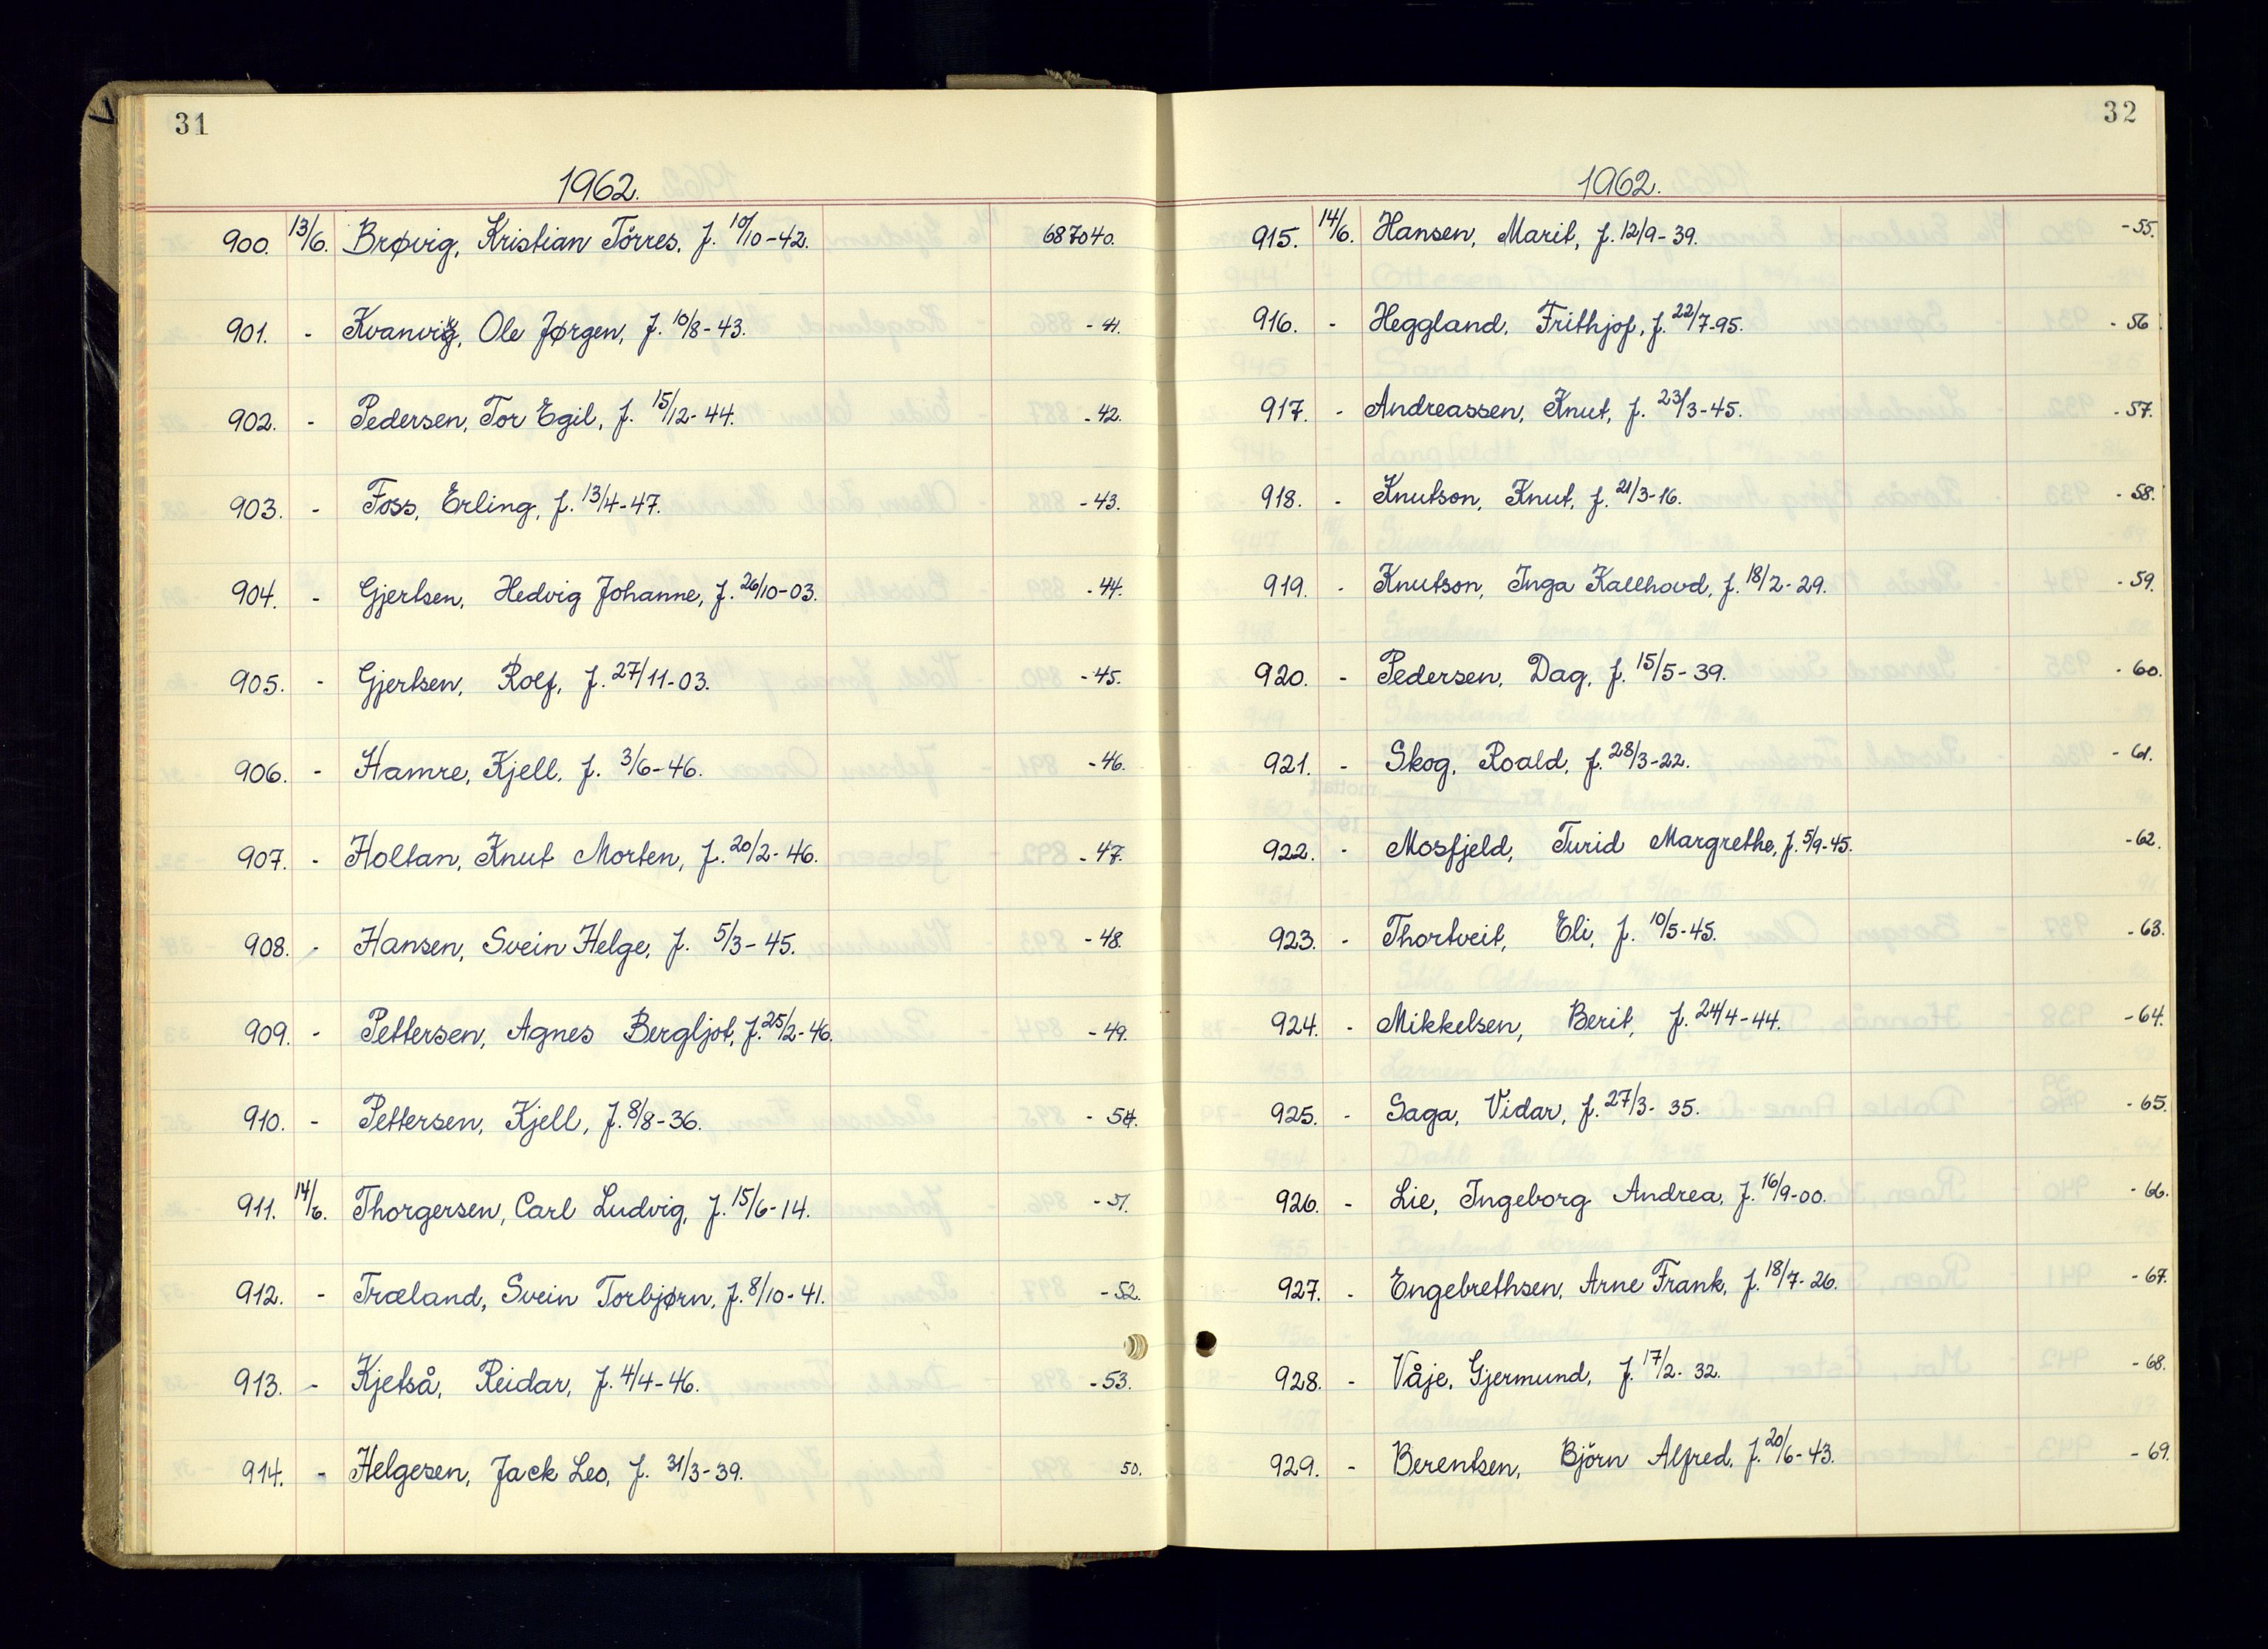 31
1962.
900. 13/6. Brøvig, Kristian Törres, f. 10/10-42. 687040.
901. - Kvanvig, Ole Jørgen, f. 10/8-43. -41.
902. - Pedersen, Tor Egil, f. 15/12-44. -42.
903. - Foss, Erling, f. 13/4-47. -43.
904. - Gjertsen, Hedvig Johanne, f. 26/10-03. -44.
905. - Gjertsen, Rolf, f. 27/11-03. -45.
906. - Hamre, Kjell, f. 3/6-46. -46.
907. - Holtan, Knut Morten, f. 20/2-46. -47.
908. - Hansen, Svein Helge, f. 5/3-45. -48.
909. - Pettersen, Agnes Bergljot, f. 25/2-46. -49.
910. - Pettersen, Kjell, f. 8/8-36. -54.
911. 14/6. Thorgersen, Carl Ludvig, f. 15/6-14. -51.
912. - Træland, Svein Torbjørn, f. 8/10-41. -52.
913. - Kjetså, Reidar, f. 4/4-46. -53.
914. - Helgesen, Jack Leo, f. 31/3-39. 50.
32
1962.
915. 14/6. Hansen, Marit, f. 12/9-39. -55.
916. - Heggland, Frithjof, f. 22/7-95. -56
917. - Andreassen, Knut, f. 23/3-45. -57.
918. - Knutson, Knut, f. 21/3-16. -58.
919. - Knutson, Inga Kallhovd, f. 18/2-29. -59.
920. - Pedersen, Dag, f. 15/5-39. -60.
921. - Skog, Roald, f. 28/3-22. -61.
922. - Mosfjeld, Turid Margrethe, f. 5/9-45. -62.
923. - Thortveit, Eli, f. 10/5-45. -63.
924. - Mikkelsen, Berit, f. 24/4-44. -64.
925. - Saga, Vidar, f. 27/3-35. -65.
926. - Lie, Ingeborg Andrea, f. 16/9-00. -66.
927. - Engebrethsen, Arne Frank, f. 18/7-26. -67.
928. - Våje, Gjermund, f. 17/2-32. -68.
929. - Berentsen, Björn Alfred, f. 20/6-43. -69.